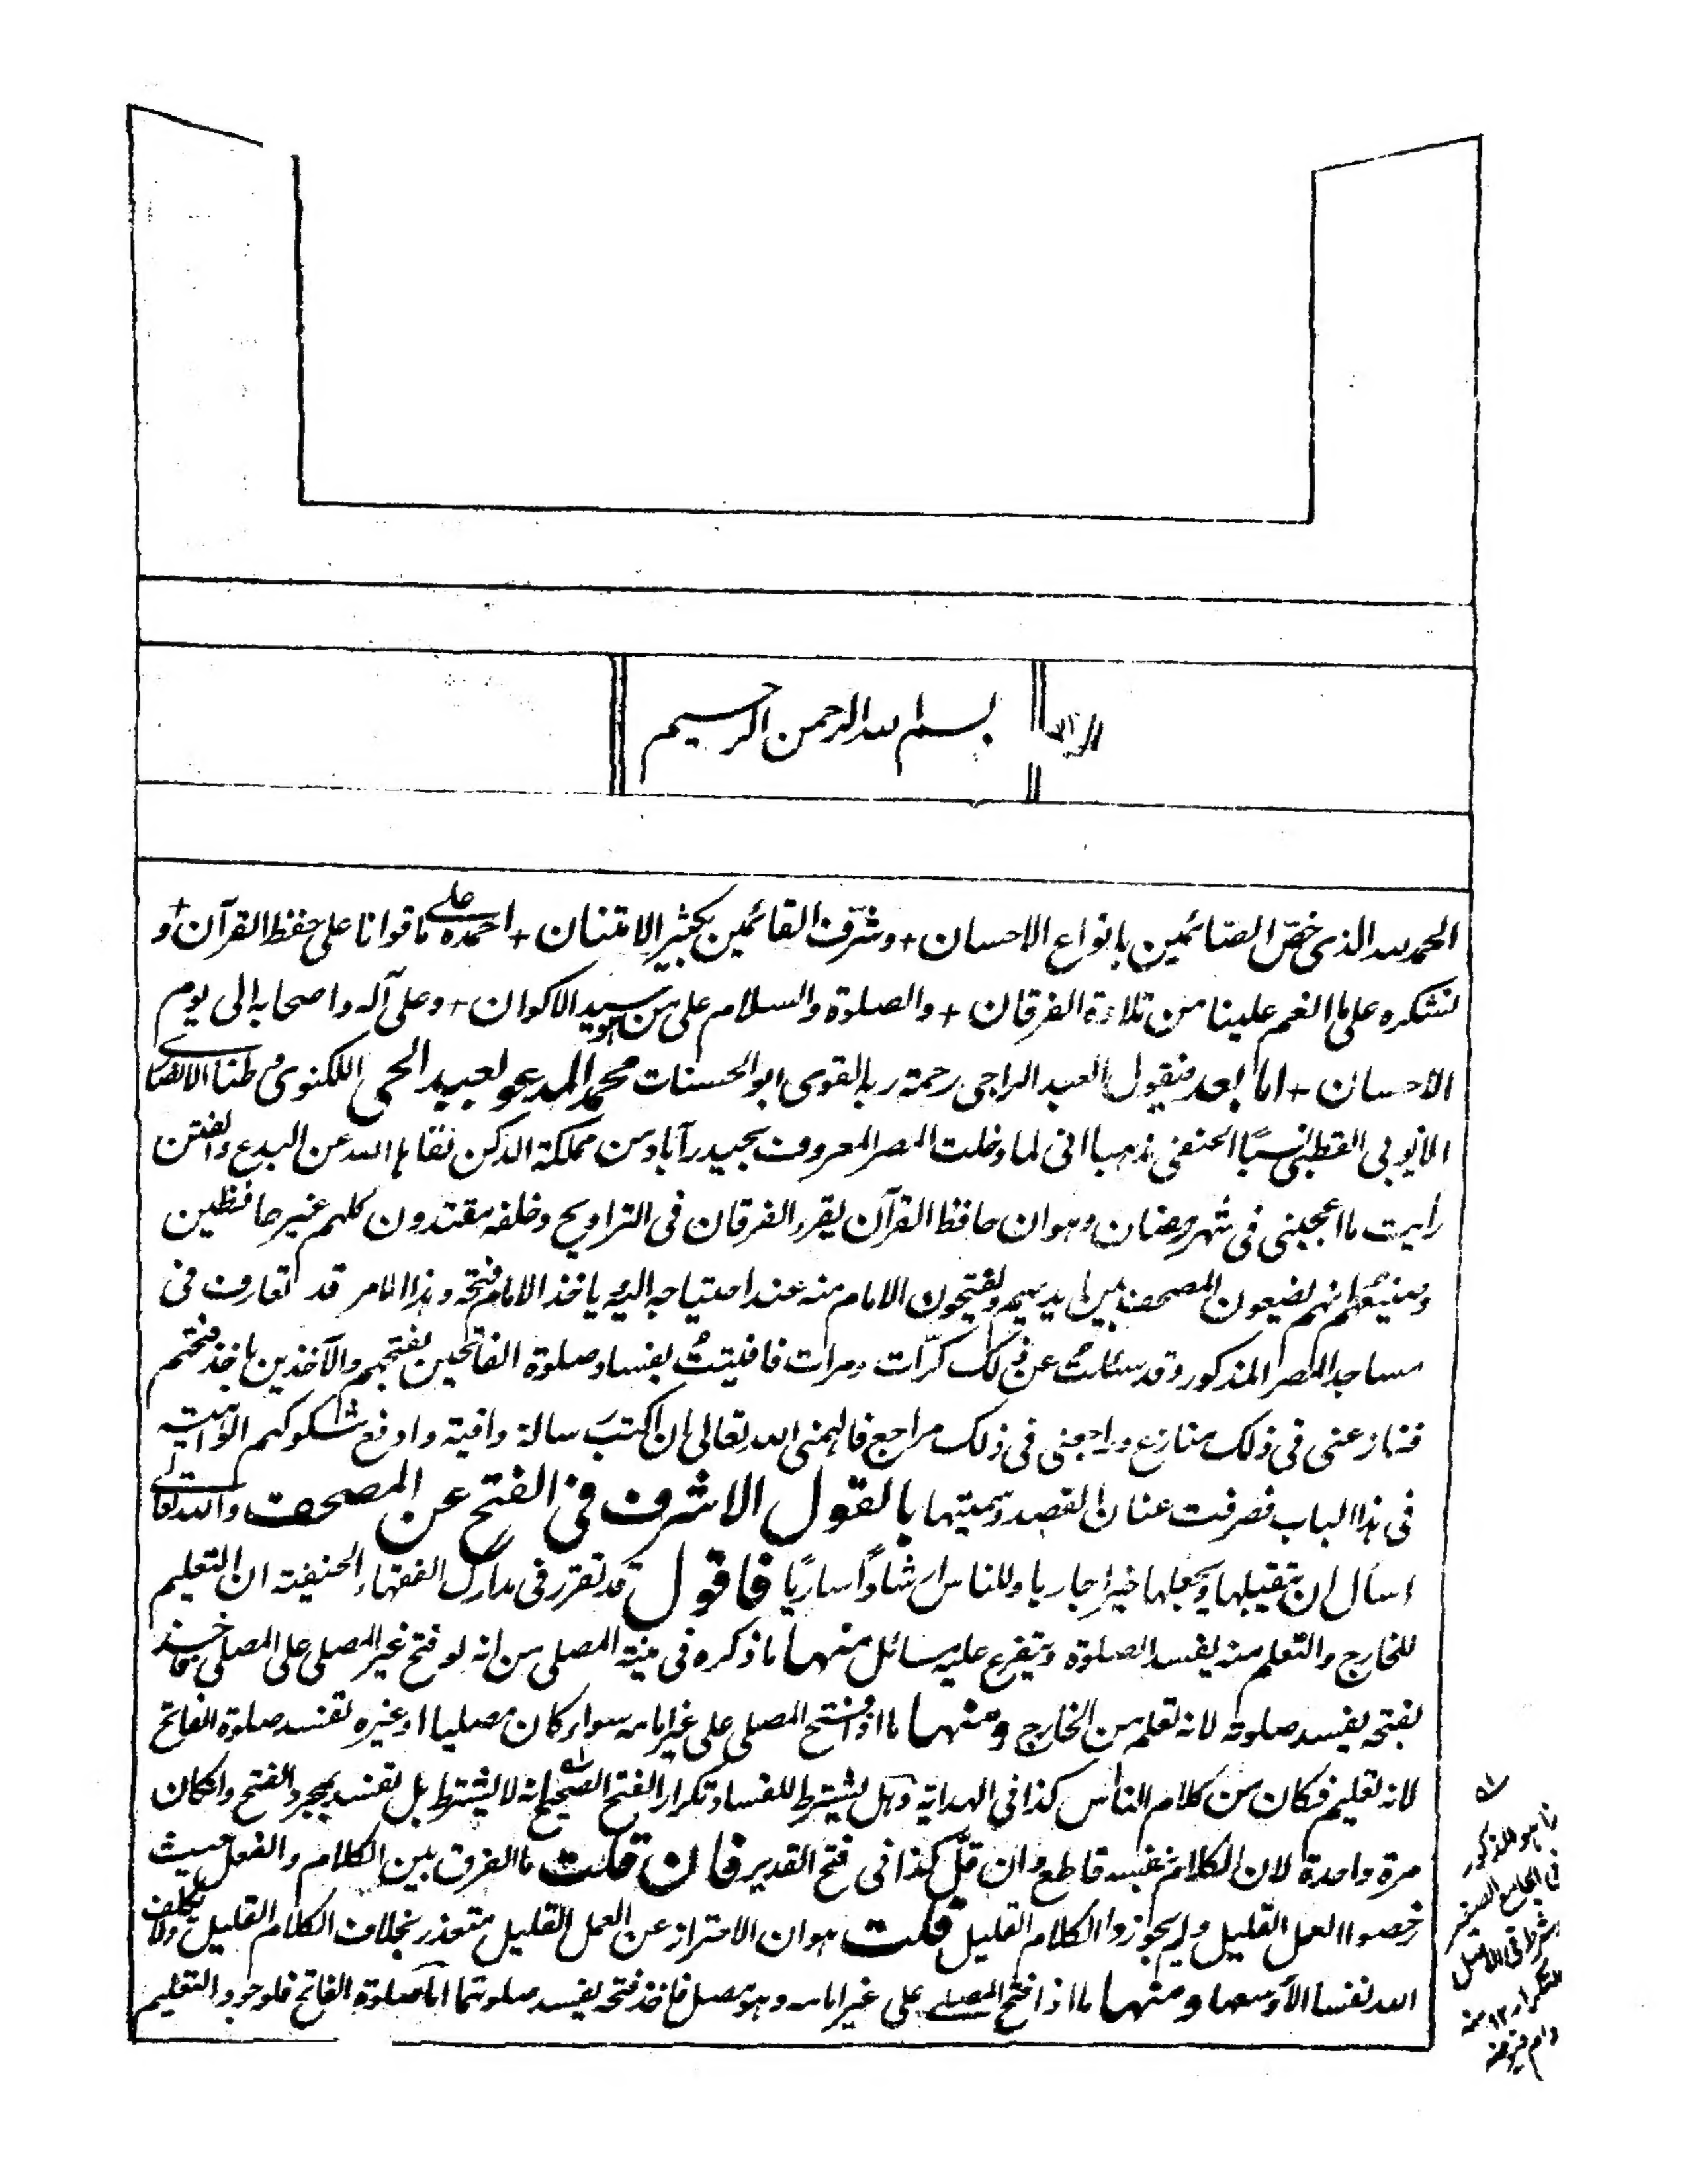 بسم الله الرحمن الرحيم
الحمد لله الذى خصّ الصّائمين بانواع الاحسان + وشرّف القائمين بكثير الامتنان + احمده على ما قوانا على حفظ القرآن + و
نشكره على ما انعم علينا من تلاوة الفرقان + والصلوة والسلام على من هو سيد الاكوان + وعلى آله واصحابه الى يوم
الاحسان + اما بعد فيقول العبد الراجى رحمة ربه القوى ابو الحسنات محمد المدعو بعبد الحى اللكنوى وطنا الانصارى
الايوبى القطبى نسبًا الحنفى مذهبا انى لما دخلت المصر المعروف بحيدرآباد من مملكة الدكن نقاها الله عن البدع والفتن
رايت ما اعجبنى فى شهر رمضان وهو ان حافظ القرآن يقرء الفرقان فى التراويح وخلفه مقتدون كلهم غير حافظين
وصنيعهم انهم يضعون المصحف بين ايديهم ويفتحون الامام منه عند احتياجه اليه ياخذ الامام فتحه وهذا الامر قد تعارف فى
مساجد المصر المذكور وقد سئلتُ عن ذلك كرّات ومرات فافتيتُ بفساد صلوة الفاتحين بفتحهم والآخذين باخذ فتحهم
فنازعنى فى ذلك منازع وراجعنى فى ذلك مراجع فالهمنى الله تعالى ان اكتبَ رسالة وافية وادفع شكوكهم الواهية
فى هذا الباب فصرفت عنان القصد وسميتها بالقول الاشرف فى الفتح عن المصحف والله تعالى
اسأل ان يتقبلها ويجعلها خيرا جاريا وللناس ارشادًا ساريًا فاقول قد تقرر فى مدارك الفقهاء الحنفية ان التعليم
للخارج والتعلم منه يفسد الصلوة ويتفرع عليه مسائل منها ما ذكره فى منية المصلى من انه لو فتح غير المصلى على المصلى فاخذ
بفتحه يفسد صلوته لانه تعلم من الخارج ومنها ما اذا فتح المصلى على غير امامه سواء كان مصليا او غيره تفسد صلوة الفاتح
لانه تعليم فكان من كلام الناس كذا فى الهداية وهل يشترط للفساد تكرار الفتح الصحيح انه لا يشترط بل تفسد بمجرد الفتح وان كان
مرة واحدة لان الكلام بنفسه قاطع وان قلّ كذا فى فتح القدير فان قلت ما الفرق بين الكلام والفعل حيث
رخصوا العمل القليل ولم يجوزوا الكلام القليل قلت هو ان الاحتراز عن العمل القليل متعذر بخلاف الكلام القليل ولا يكلف
الله نفسا الا وسعها ومنها ما اذا فتح المصلى على غير امامه وهو مصل فاخذ فتحه يفسد صلوتهما اما صلوة الفاتح فلوجود التعليم
هو المذكور
فى الجامع الصغير
وشرط فى الاصل
التكرار ١٢ منه
دام فيوضه